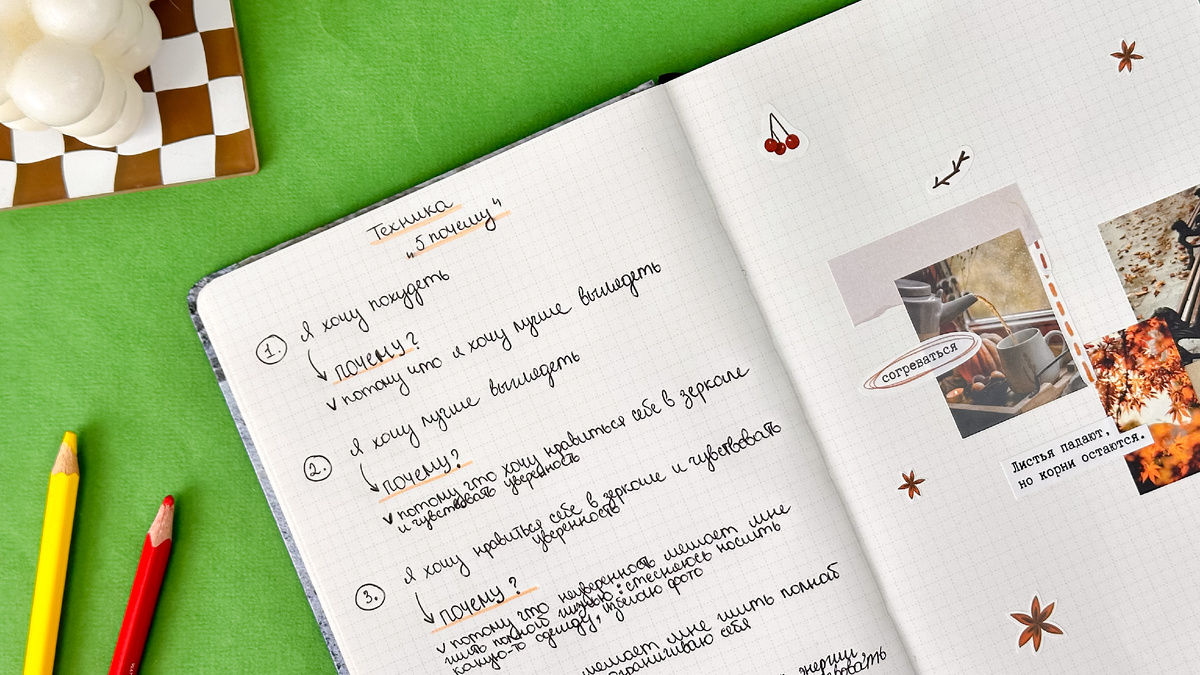 Техника
„5 почему“
1. Я хочу похудеть
почему?
v потому что я хочу лучше выглядеть
2. Я хочу лучше выглядеть
почему?
v потому что хочу нравиться себе в зеркале
и чувствовать уверенность
3. Я хочу нравиться себе в зеркале и чувствовать
уверенность
почему?
v потому что неуверенность мешает мне
жить полной жизнью: стесняюсь носить
какую-то одежду, избегаю фото
мешает мне жить полной
ограничиваю себя
согреваться
Листья падают,
но корни остаются.